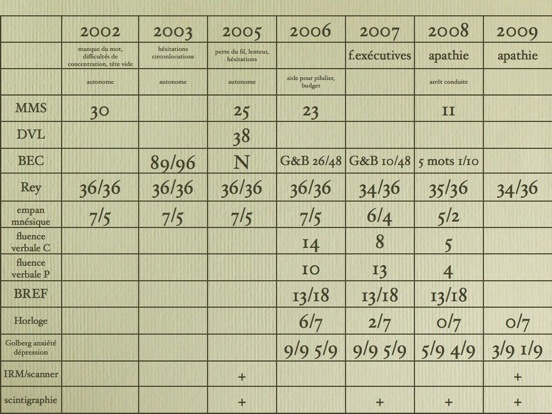 2002 2003 2005 2006 2007 2008 2009
manque du mot, difficultés de concentration, tête vide hésitations circonlocutions perte du fil, lenteur, hésitations f.exécutives apathie apathie
autonome autonome autonome aide pour pilulier, budget arrêt conduite
MMS 30 25 23 11
DVL 38
BEC 89/96 N G&B 26/48 G&B 10/48 5 mots 1/10
Rey 36/36 36/36 36/36 36/36 34/36 35/36 34/36
empan mnésique 7/5 7/5 7/5 7/5 6/4 5/2
fluence verbale C 14 8 5
fluence verbale P 10 13 4
BREF 13/18 13/18 13/18
Horloge 6/7 2/7 0/7 0/7
Golberg anxiété dépression 9/9 5/9 9/9 5/9 5/9 4/9 3/9 1/9
IRM/scanner + +
scintigraphie + + + +